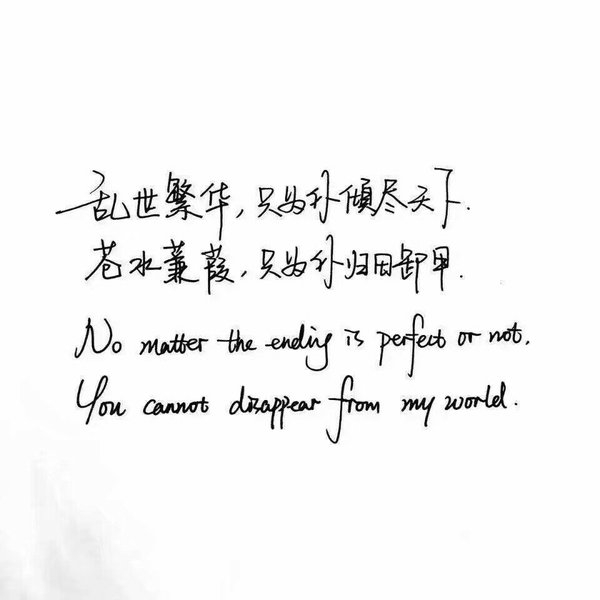 乱世繁华,只为你傾尽天下.
苍水蒹葭,只为你归田卸甲.
No matter the ending is perfect or not.
You cannot disappear from my world.